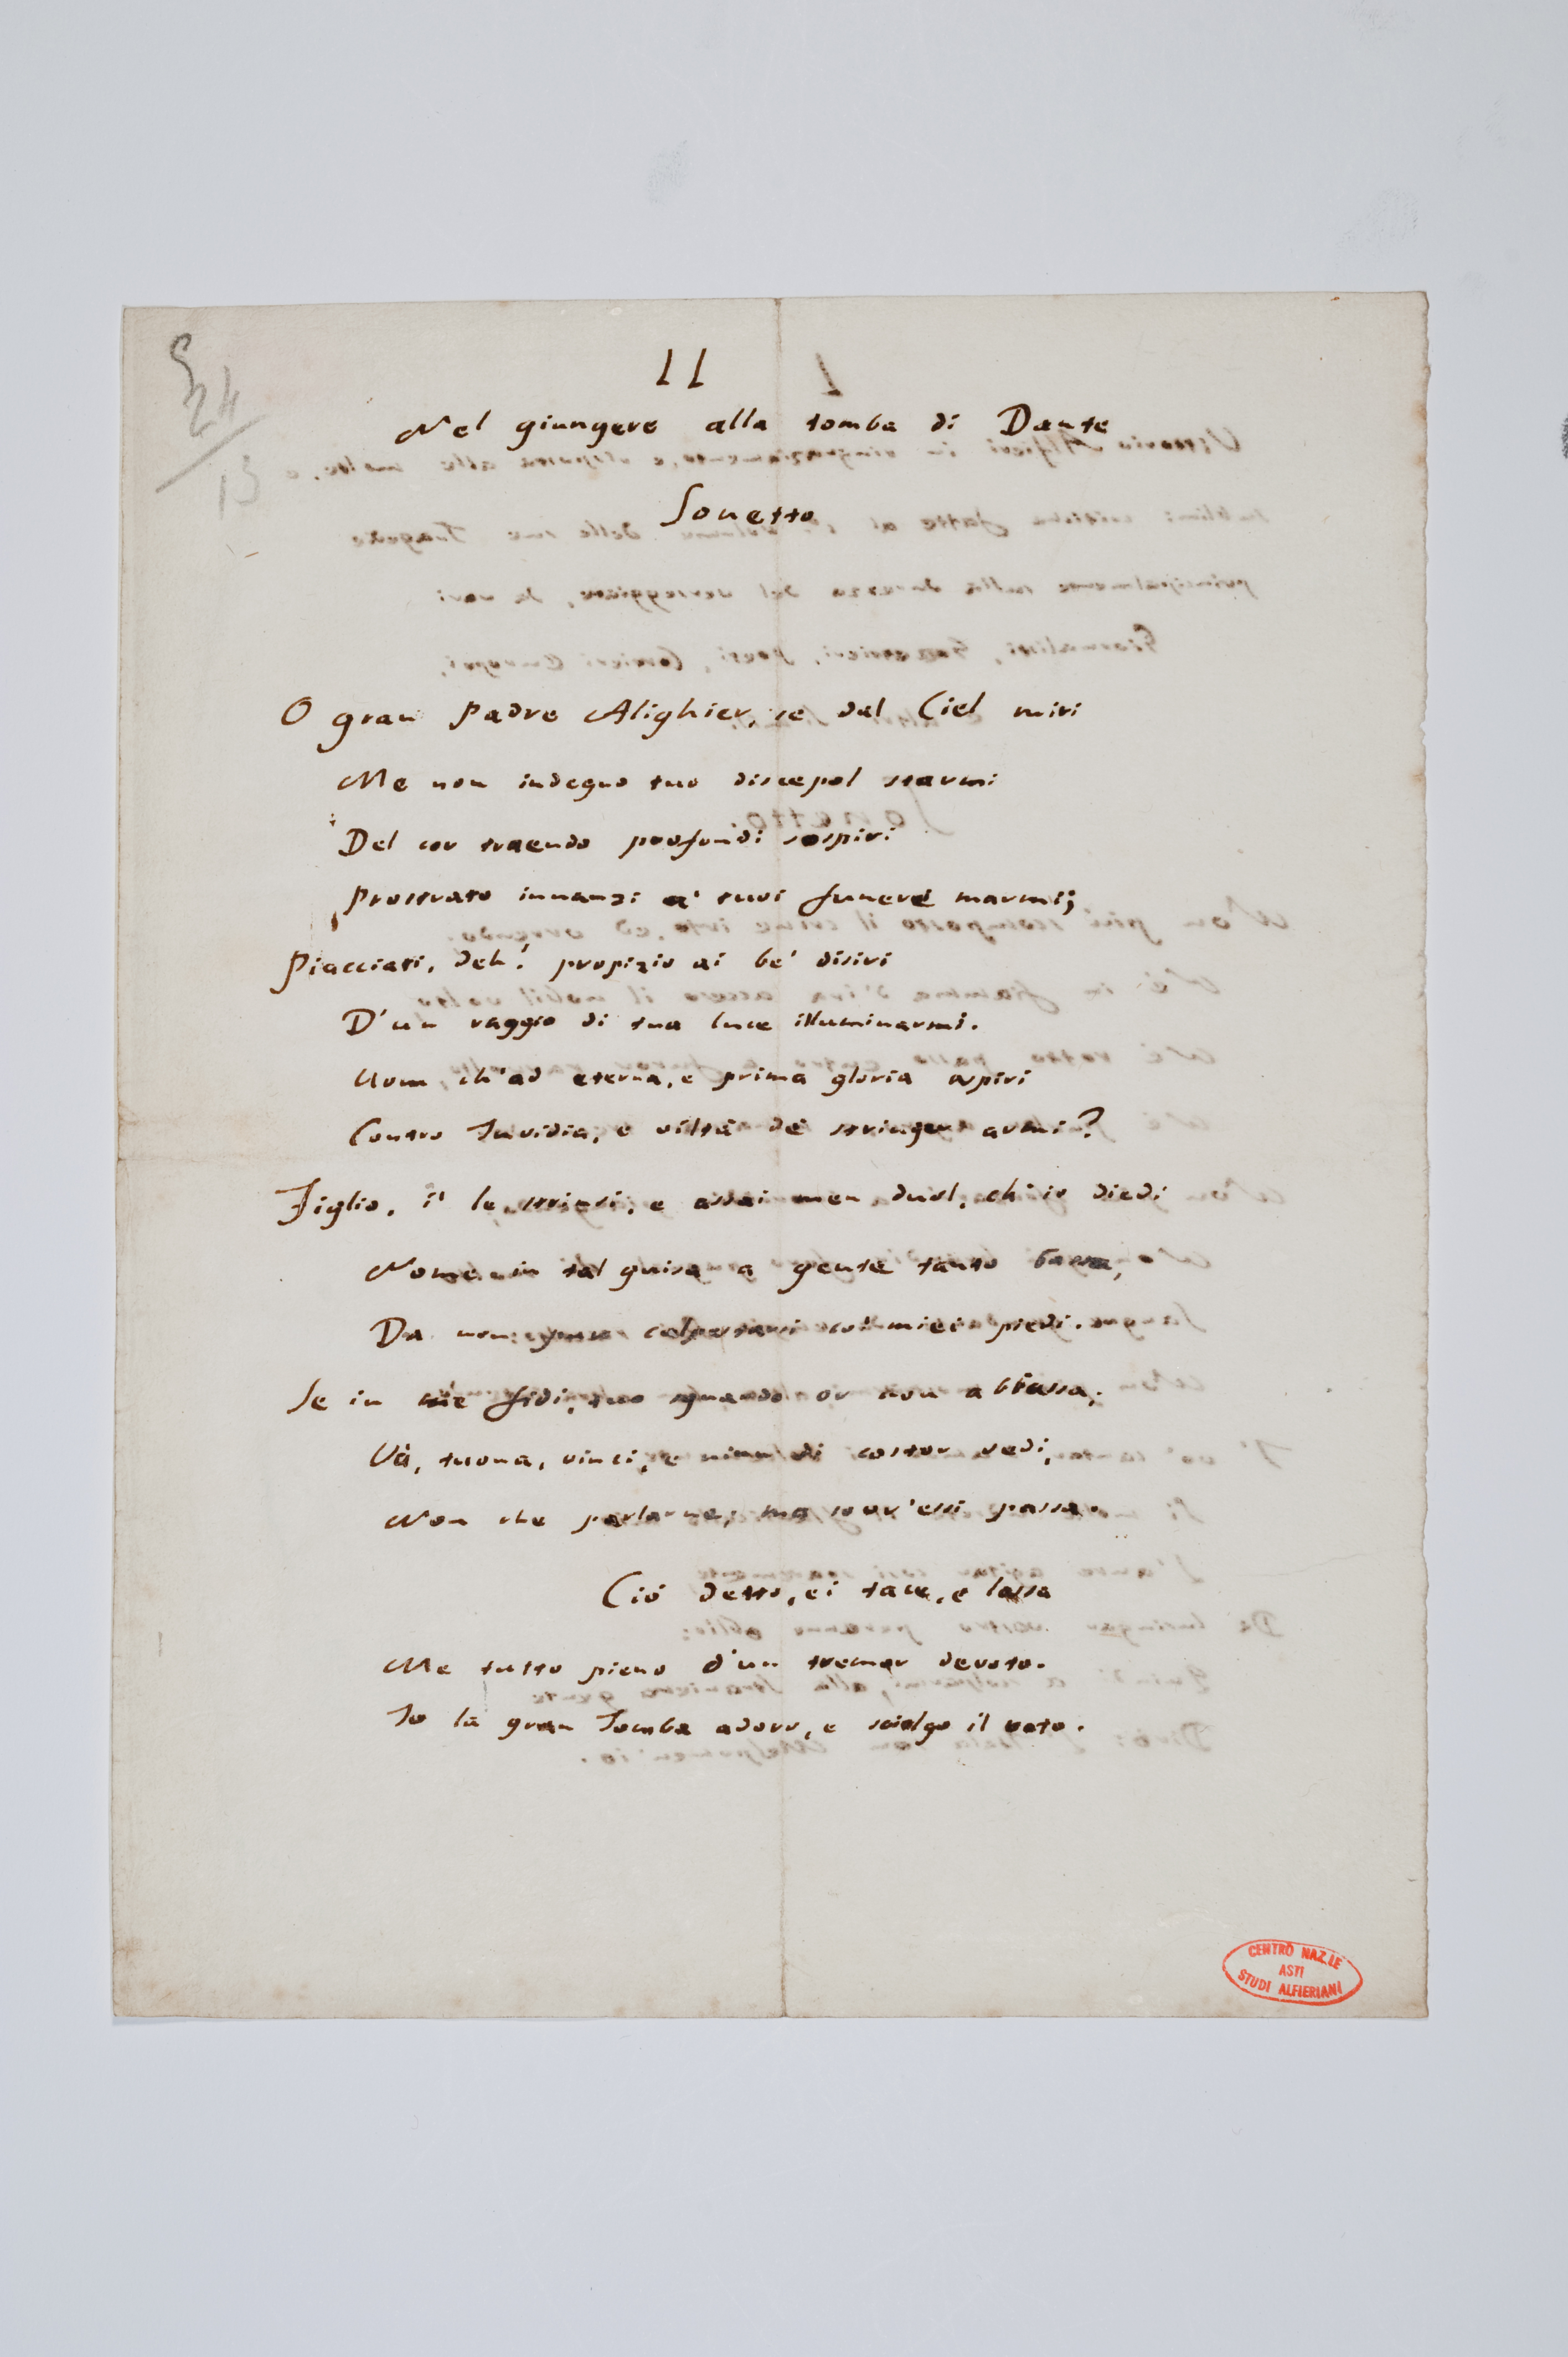 24
13
11
Nel giungere alla tomba di Dante
Sonetto
O gran Padre Alighier, se dal Ciel miri
Me non indegno tuo discepol starmi
Del cor traendo profondi sospiri
Prostrato innanzi a' tuoi funerei marmi;
Piacciati, deh! propizio ai be' disiri
D'un raggio di tua luce illuminarmi.
Uom ch'ad eterna, e prima gloria aspiri
Contro Invidia, e viltà de' stringer armi?
Figlio, i' le strinsi, e assai men duol, ch'io diedi
Nome in tal guisa a gente tanto bassa,
Da non pur calpestarsi co' miei piedi.
Se in me fidi, tuo sguardo or non abbassa;
Và, tuona, vinci, e niun di costor vedi,
Non che parlarne; ma sovr'essi passa.
Ciò detto, ei tace, e lassa
Me tutto pieno d'un tremor devoto.
Io la gran Tomba adoro, e sciolgo il voto.
CENTRO NAZ.LE
ASTI
STUDI ALFIERIANI